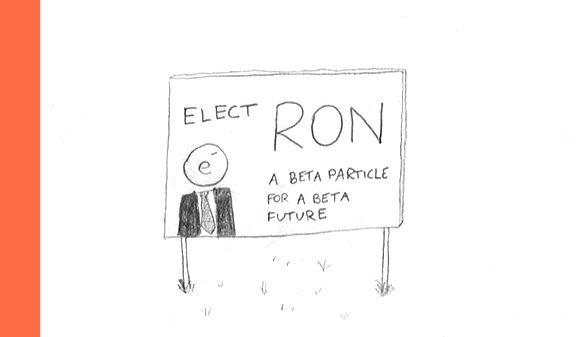 ELECT RON
e⁻
A BETA PARTICLE
FOR A BETA
FUTURE